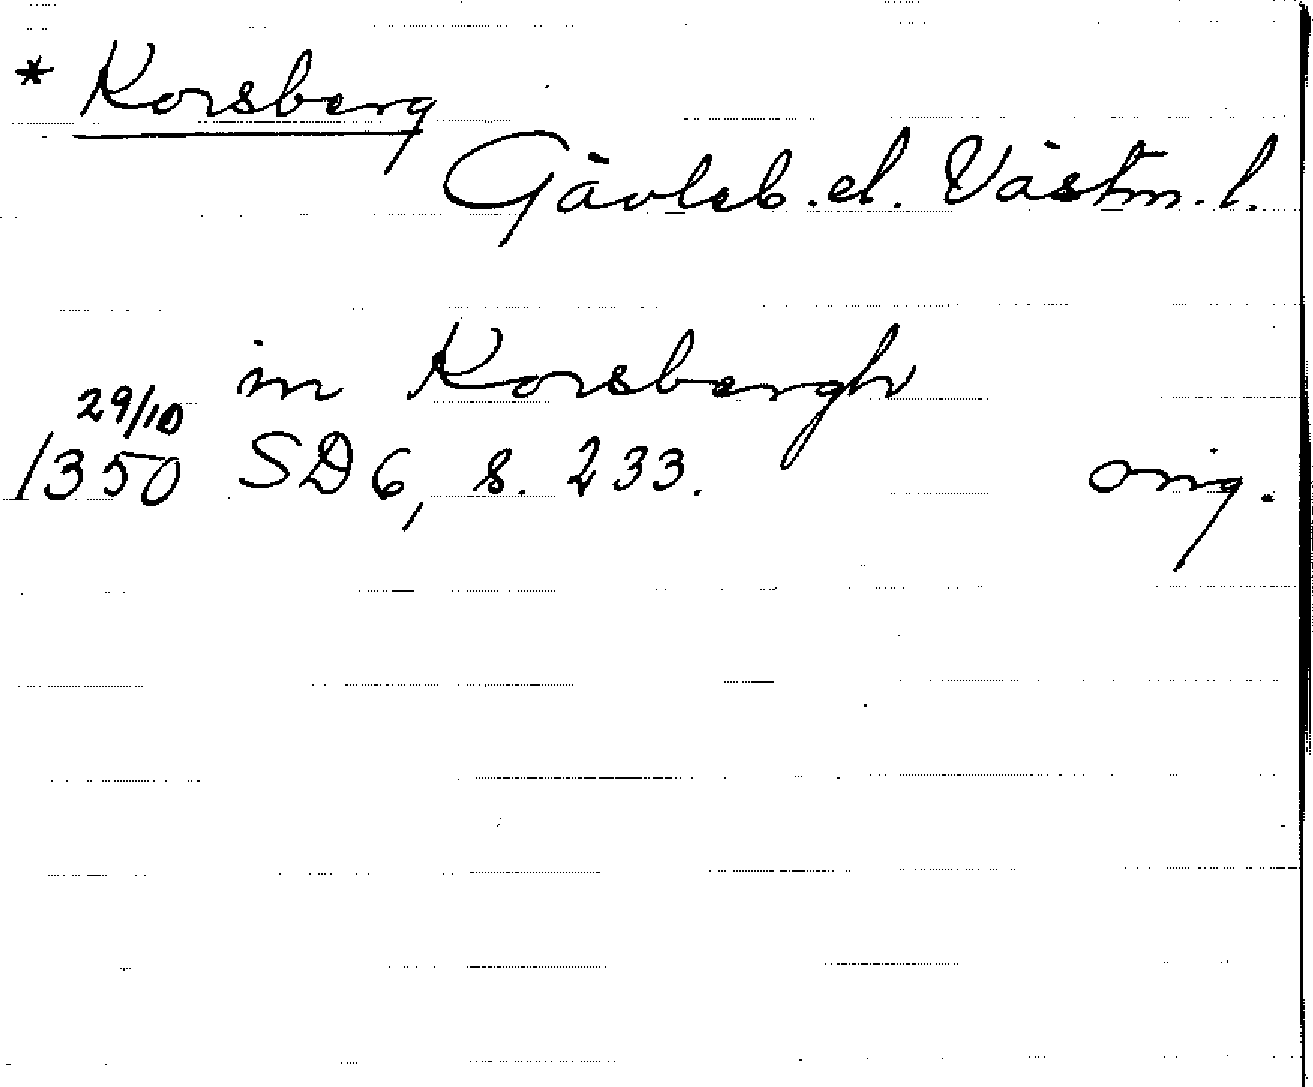 * Korsberg
Gävleb. el. Västm. l.
in Korsbergh
29/10
1350 SD 6, s. 233. orig.